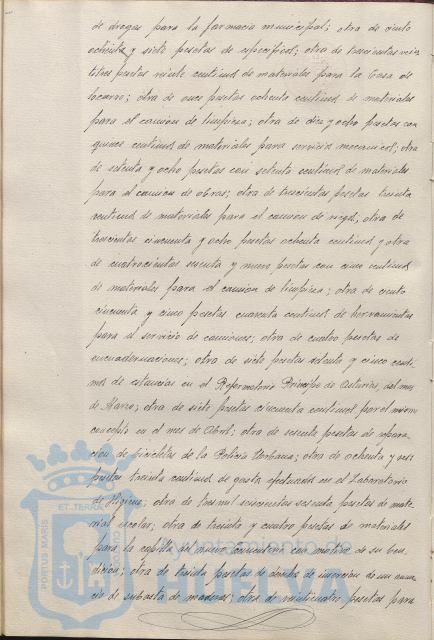 de drogas para la farmacia municipal; otra de ciento
ochenta y siete pesetas de específicos; otra de trescientas vein
titres pesetas veinte centimos de materiales para la Casa de
Socorro; otra de once pesetas ochenta centimos de materiales
para el camión de limpieza; otra de diez y ocho pesetas con
quince centimos de materiales para servicios mecanicos; otra
de setenta y ocho pesetas con setenta centimos de materiales
para el camión de obras; otra de trescientas pesetas treinta
centimos de materiales para el camión de riego, otra de
trescientas cincuenta y ocho pesetas ochenta centimos y otra
de cuatrocientas sesenta y nueve pesetas con cinco centimos
de materiales para el camion de limpieza; otra de ciento
cincuenta y cinco pesetas cuarenta centimos de herramientas
para el servicio de camiones; otra de cuatro pesetas de
encuadernaciones; otra de siete pesetas setenta y cinco centi-
mos de estancias en el Reformatorio Principe de Asturias, del mes
de Marzo; otra de siete pesetas cincuenta centimos por el mismo
concepto en el mes de Abril; otra de sesenta pesetas de repara
ción de bicicletas de la Policía Urbana; otra de ochenta y seis
pesetas treinta centimos de gastos efectuados en el Laboratorio
de Higiene; otra de tres mil seiscientas sesenta pesetas de mate
rial escolar; otra de treinta y cuatro pesetas de materiales
para la capilla del nuevo cementerio con motivo de su ben
dición; otra de treinta pesetas de derechos de inserción de un anun
cio de subasta de maderas; otra de veinticuatro pesetas para
ET TERRA
PORTUS MARIS
Ayuntamiento de